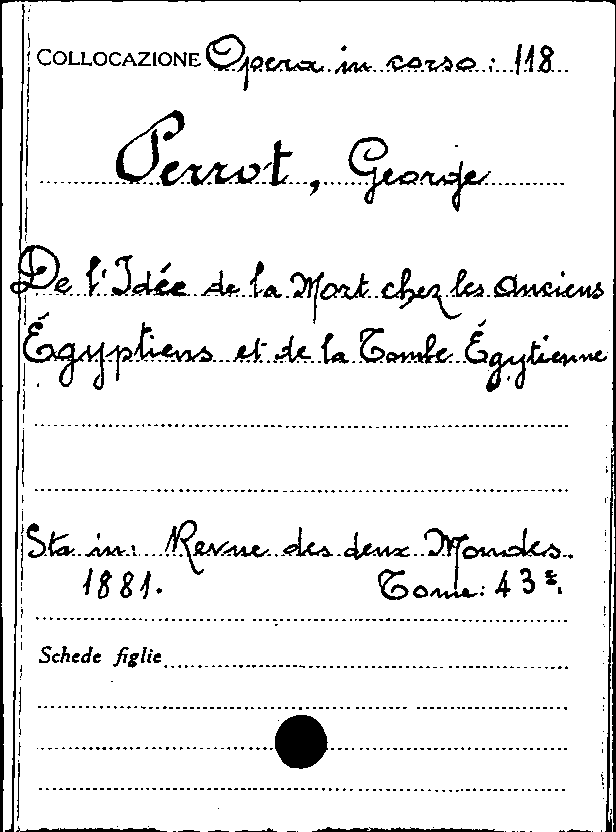 COLLOCAZIONE Opera in corso: 118
Perrot, George
De l'Idée de la Mort chez les Anciens
Égyptiens et de la Tombe Égytienne
Sta in: Revue des deux Mondes.
1881. Tome: 43e.
Schede figlie